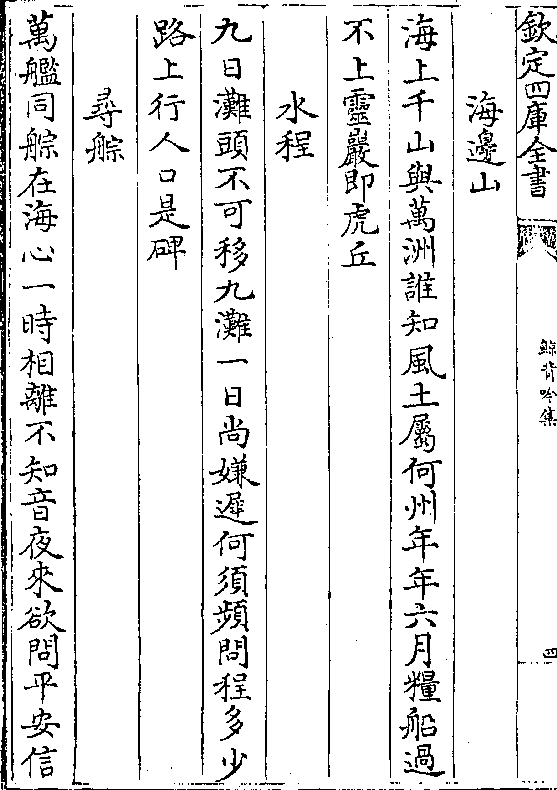 欽定四庫全書
鯨背吟集
四
海邊山
海上千山與萬洲誰知風土屬何州年年六月糧船過
不上靈巖即虎丘
水程
九日灘頭不可移九灘一日尚嫌遲何須頻問程多少
路上行人口是碑
尋䑸
萬艦同䑸在海心一時相離不知音夜來欲問平安信